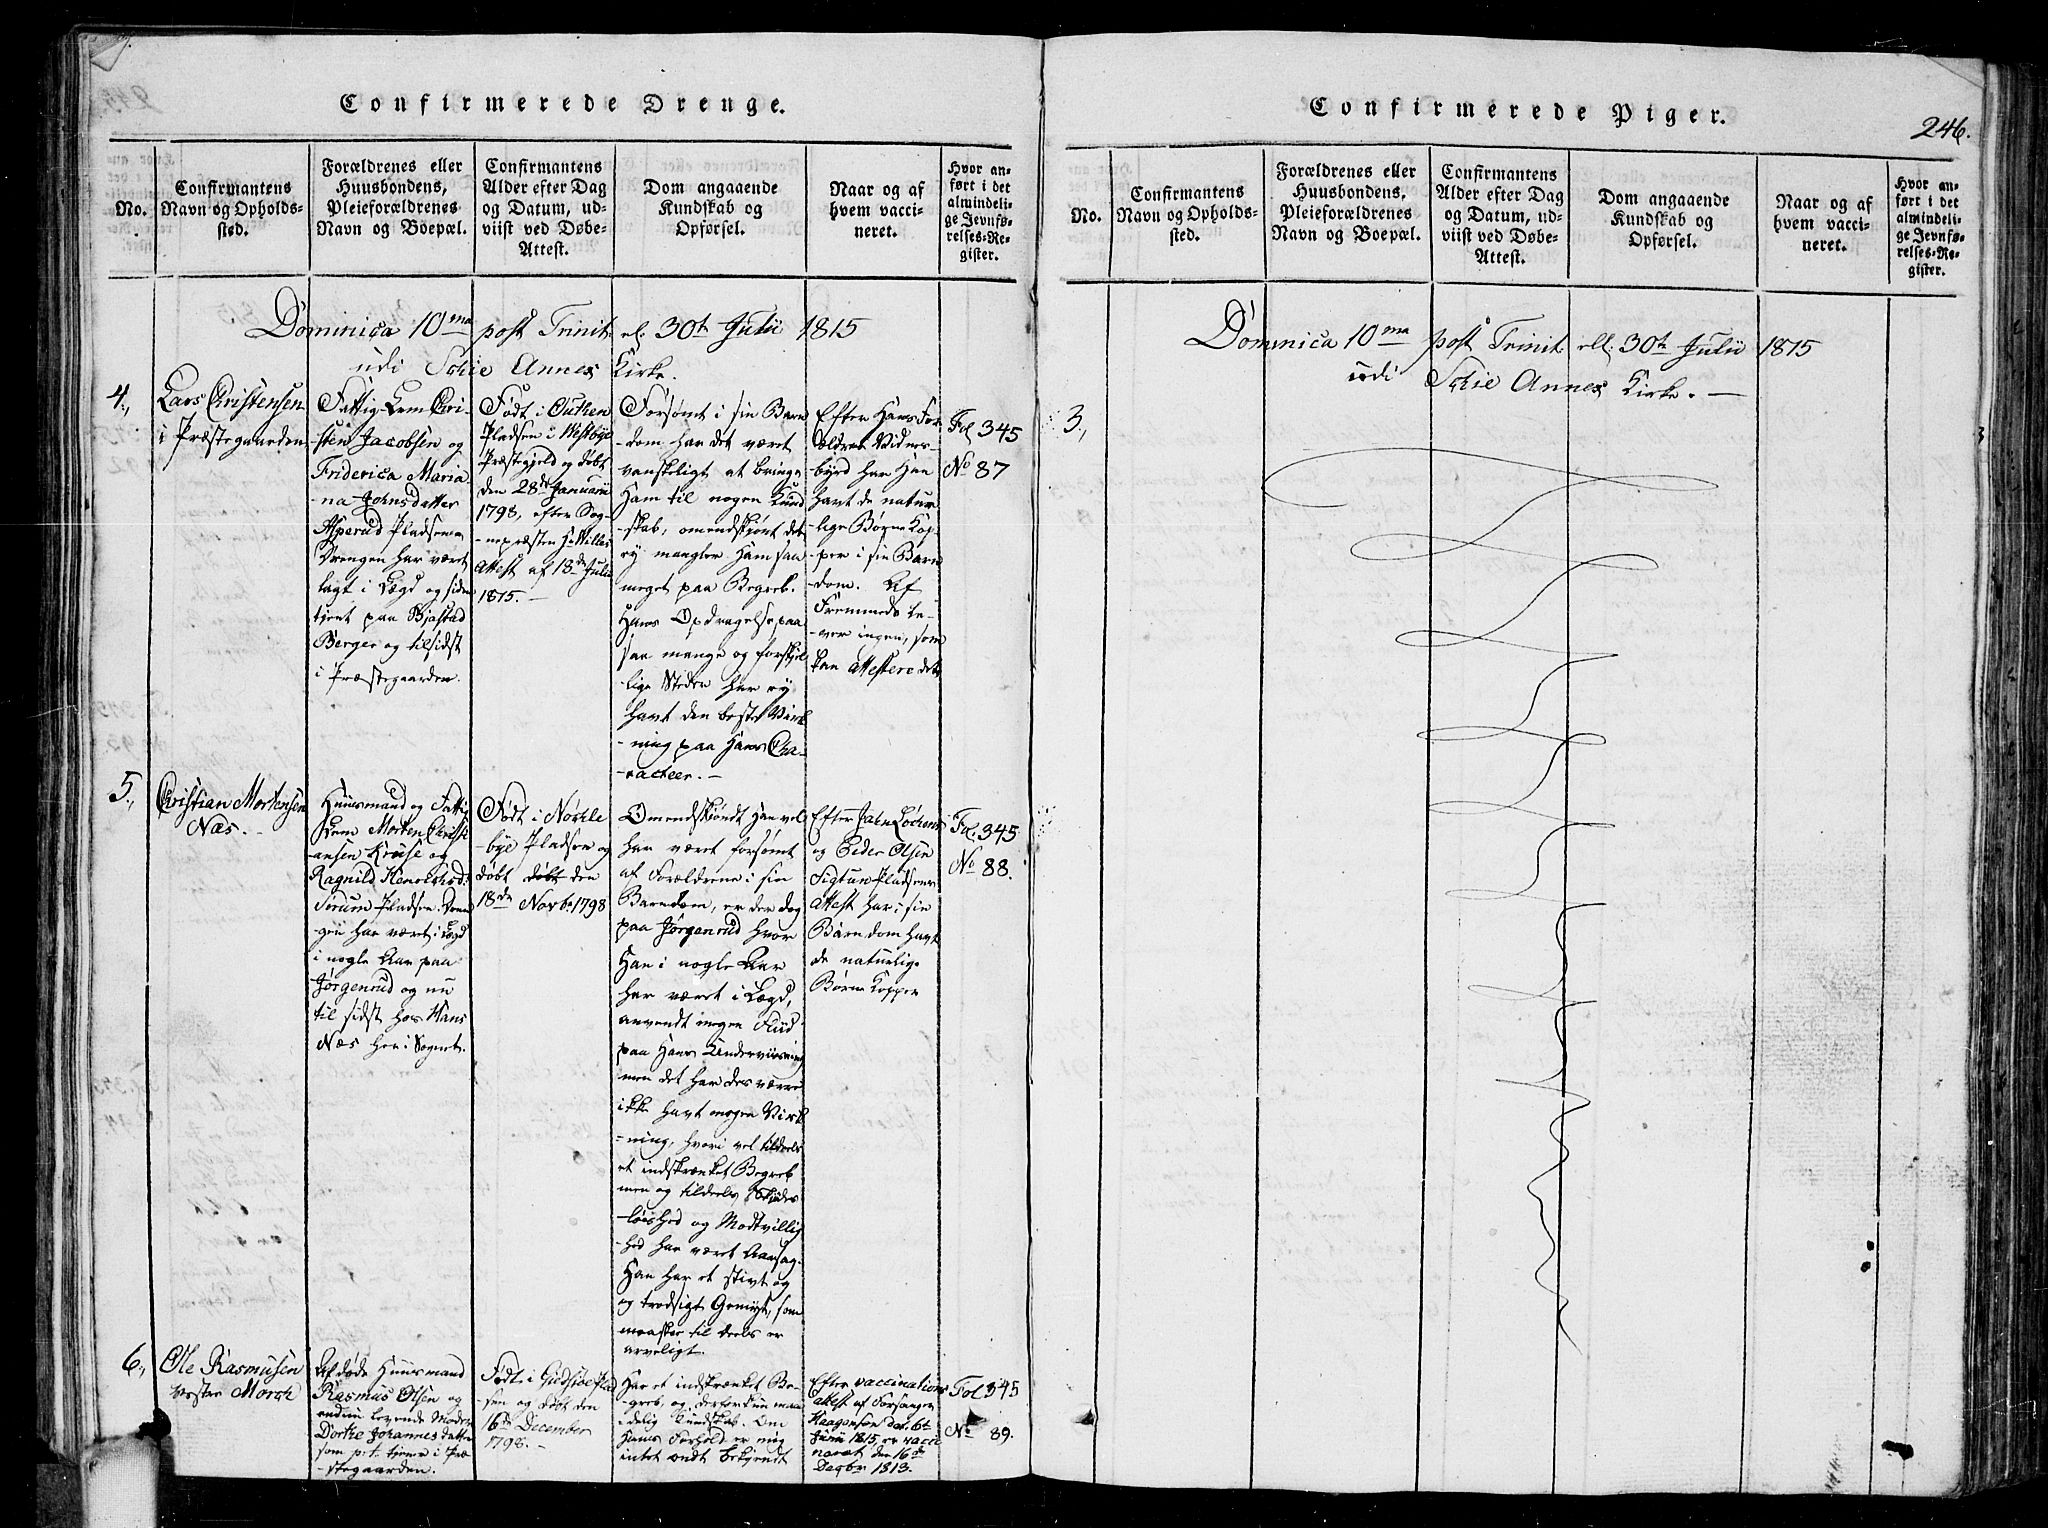 Confirmerede Drenge.
No.
Confirmantens
Navn og Opholds-
sted.
Forældrenes eller
Huusbondens,
Pleieforældrenes
Navn og Boepæl.
Confirmantens
Alder efter Dag
og Datum, ud-
viist ved Døbe-
Attest.
Dom angaaende
Kundskab og
Opførsel.
Naar og af
hvem vacci-
neret.
Hvor an-
ført i det
almindeli-
ge Jevnfø-
relses-Re-
gister.
Dominica 10ma post Trinit. el. 30te Julii 1815
udi Sophie Annes Kirke.
4.,
Lars Christensen
i Præstegaarden
Fattig-Lem Chri-
sten Jacobsen og
Friderica Maria-
na Johnsdatter
Asperud Pladsen
Drengen har været
lagt i Lægd og siden
tjent paa Bjastad
Berger og tilsidst
i Præstegaarden.
Født i
Pladsen i Westbye
Præstegjeld og døbt
den 28de Januarii
1798, efter Sog-
nepræsten H. Willes
Attest af 18de Julii
1815.
Forsømt i sin Barn
dom har det været
vanskeligt at bringe
Ham til nogen Kund
-skab, omendskjønt det
ey mangler Ham saa
meget paa Begreb.
Hans Opdragelse paa
saa mange og forskjel
lige Steder har ey
havt den beste Virk
-ning paa Hans Cha-
racteer. -
Efter Hans For
ældres Vidnes-
byrd har Han
havt de natur
lige Børne Kop-
per i sin Barn
dom. Af
Fremmede le-
-ver ingen, som
kan attestere det
Fol. 345
No 87
5.,
Christian Mortensen
Næs.
Huusmand og Fattig
Lem Morten Christi
ansen Kruse og
Ragnild Henrichsd.
Sørum Pladsen. Dren
gen har været i Lægd
i nogle Aar paa
Jørgenrud og nu
til sidst hos Hans
Næs her i Sognet.
Født i Nordle
bye Pladsen og
døbt døbt den
18de Novbr. 1798
Omendskjøndt Han vel
har været forsømt
af Forældrene i sin
Barndom, er der dog
paa Jørgenrud hvor
Han i nogle Aar
har været i Lægd,
anvendt megen Fliid
paa Hans Underviisning
men det har desværre
ikke havt nogen Virk
-ning, hvori vel tildeels
et indskrænket Begreb
men og tildeels Skiødes
løshed og Modvillig
-hed har været Aarsag.
Han har et stivt og
og trodsigt Gemyt, som
maaskee til deels er
arveligt.
Efter John Løchens
og Peder Olsen
Sigtun Pladsens
Attest har i sin
Barndom havt
de naturlige
Børne Kopper
Fol. 345
No 88.
6.,
Ole Rasmusen
vestre Morch
Afdøde Huusmand
Rasmus Olsen og
endnu levende Moder
Dorthe Johannesdatter
som p.t. tjener i Præ
-stegaarden.
Født i Gudsøe Plad
sen og døbt den
16de December
1798. -
Har et indskrænket Be-
greb, og desforuden maa
delig Kundskab. Om
Hans Forhold er mig
intet ondt bekjendt
Efter vaccinations
attest af Forsanger
Haagensen dat. 6te
Junii 1815, er vacci
neret den 16de
Decbr 1813.
Fol 345
No 89.
Confirmerede Piger.
246.
No.
Confirmantens
Navn og Opholds-
sted.
Forældrenes eller
Huusbondens,
Pleieforældrenes
Navn og Boepæl.
Confirmantens
Alder efter Dag
og Datum, ud-
viist ved Døbe-
Attest.
Dom angaaende
Kundskab og
Opførsel.
Naar og af
hvem vacci-
neret.
Hvor an-
ført i det
almindeli-
ge Jevnfø-
relses-Re-
gister.
Dominica 10ma post Trinit. ell. 30te Julii 1815
udi Sophie Annes Kirke. -
3.,